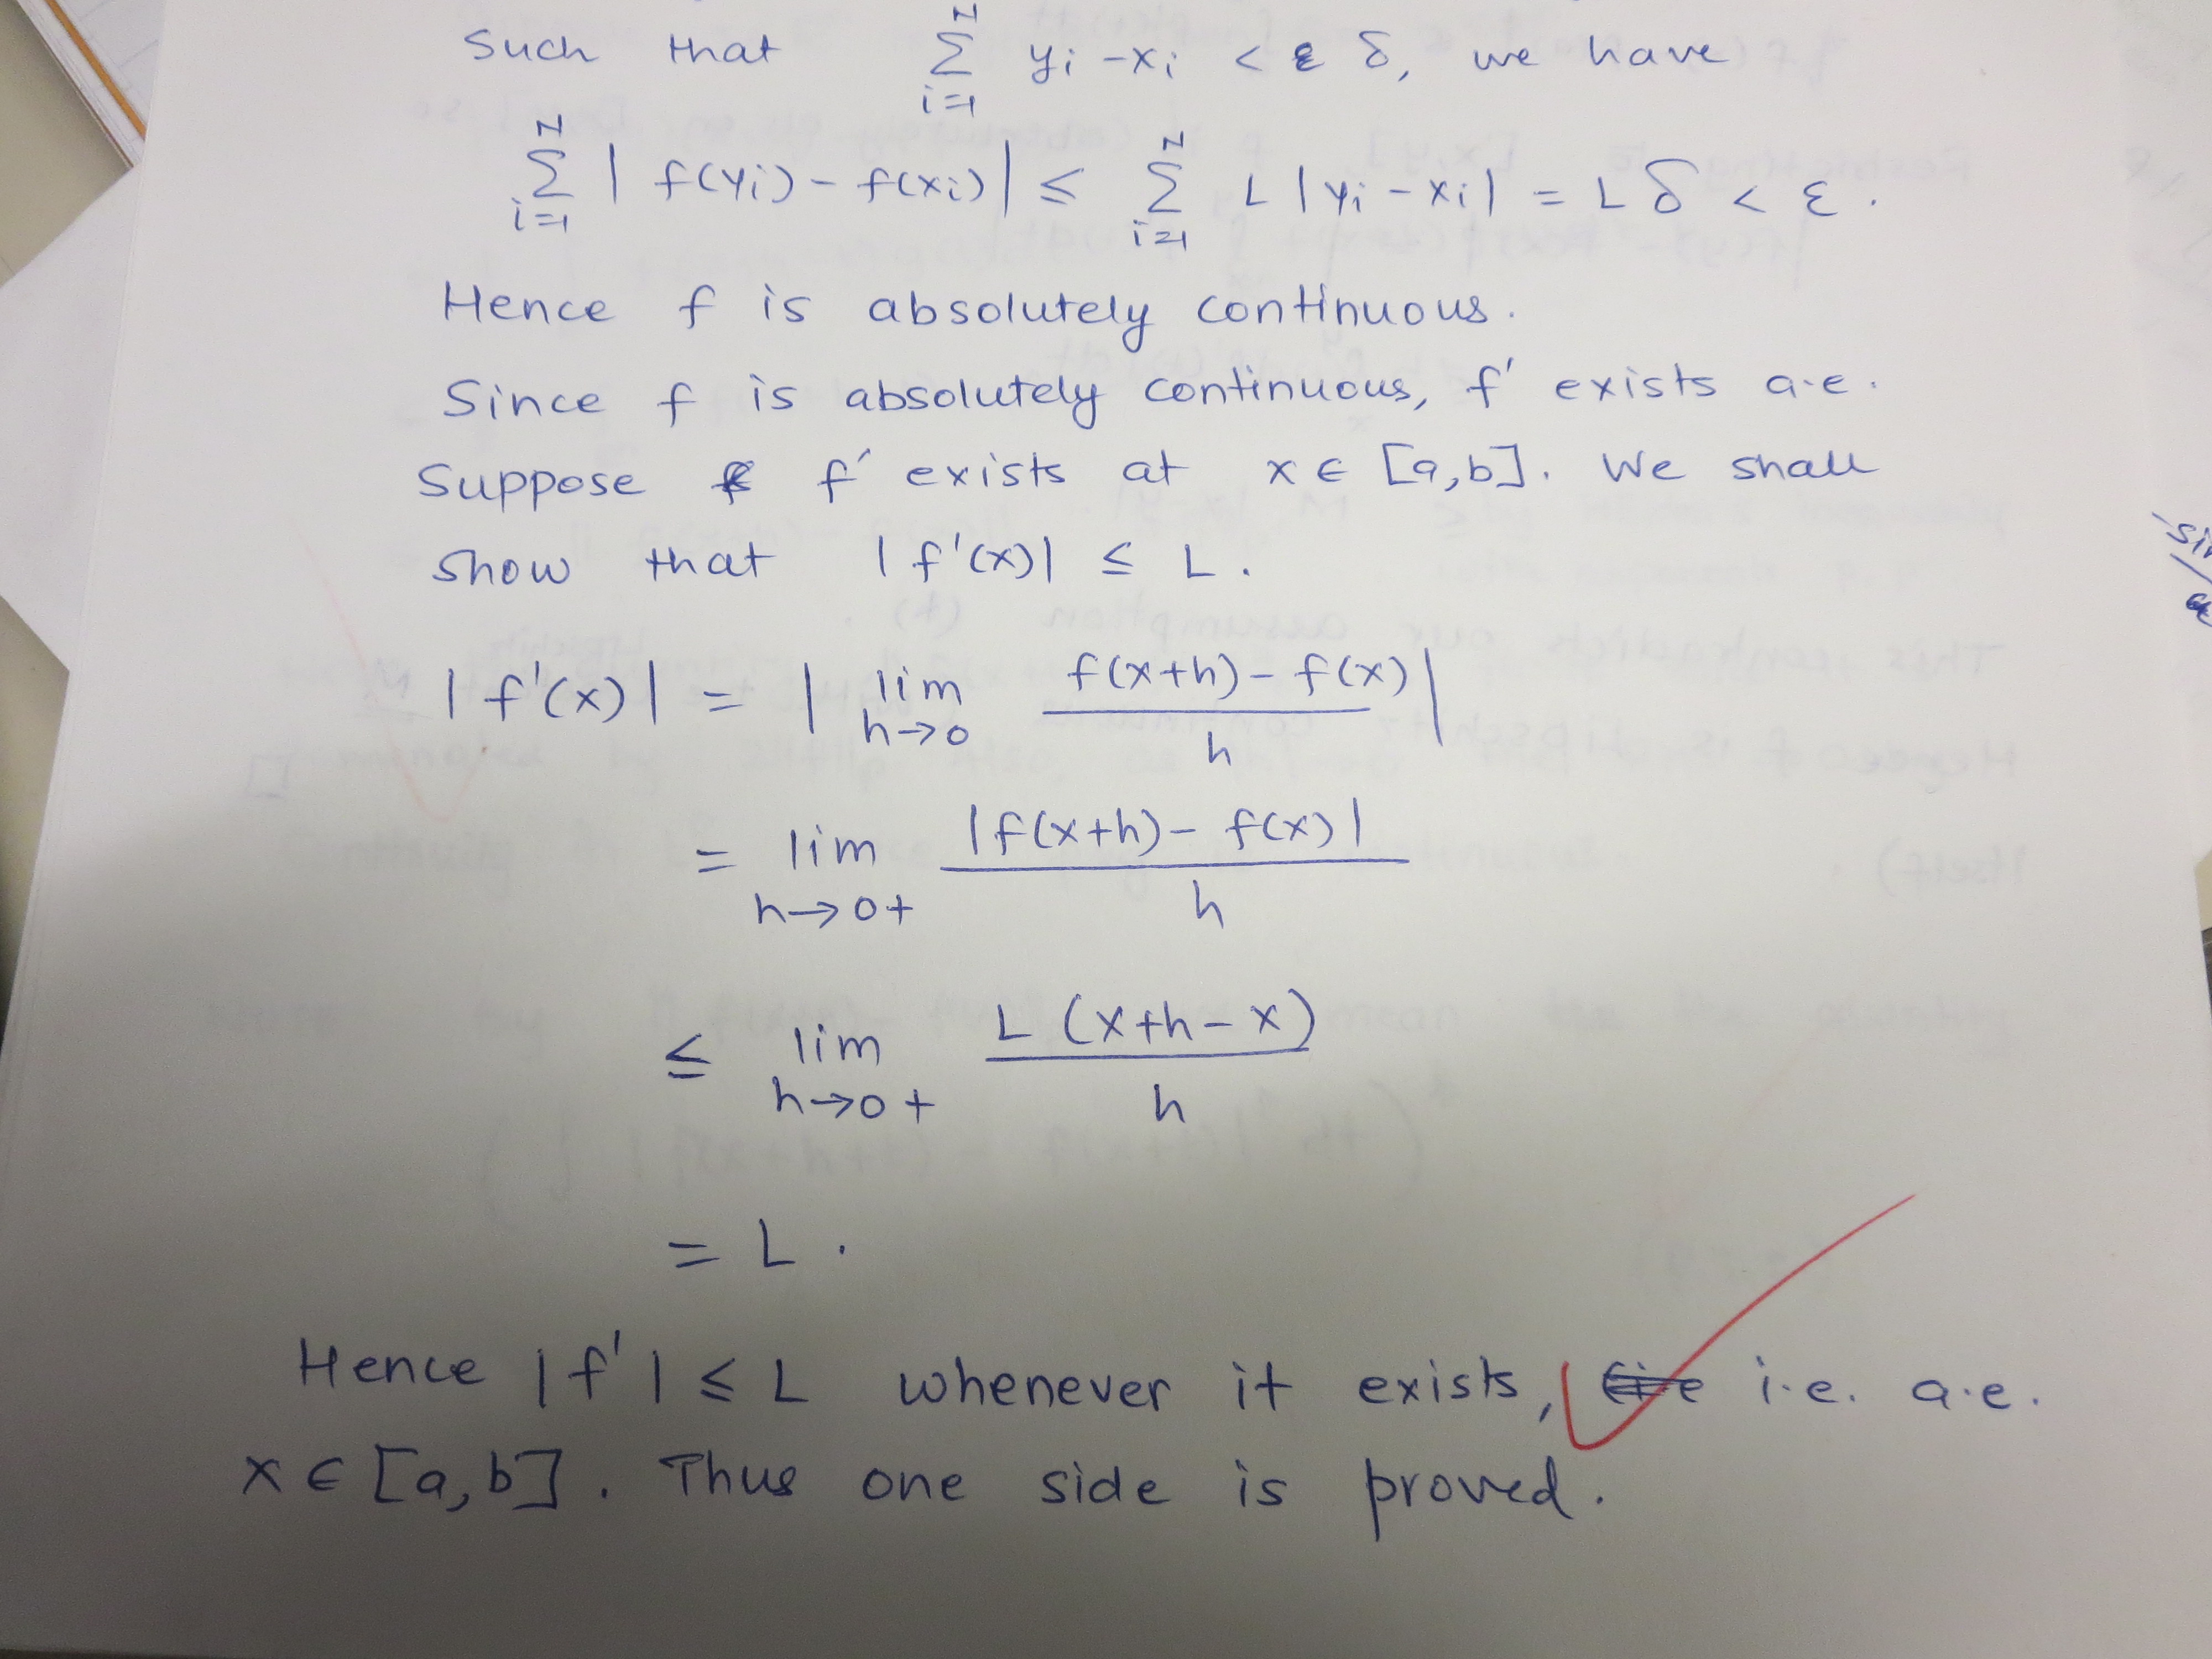 such that \sum_{i=1}^{N} y_i - x_i < δ, we have
\sum_{i=1}^{N} | f(y_i) - f(x_i) | ≤ \sum_{i=1}^{N} L | y_i - x_i | = L δ < ε .
Hence f is absolutely continuous.
Since f is absolutely continuous, f' exists a.e.
Suppose f' exists at x ∈ [a,b]. We shall
show that | f'(x) | ≤ L .
| f'(x) | = | lim_{h→0} \frac{f(x+h) - f(x)}{h} |
= lim_{h→0+} \frac{| f(x+h) - f(x) |}{h}
≤ lim_{h→0+} \frac{L (x+h - x)}{h}
= L .
Hence | f' | ≤ L whenever it exists, i.e. a.e.
x ∈ [a,b] . Thus one side is proved.